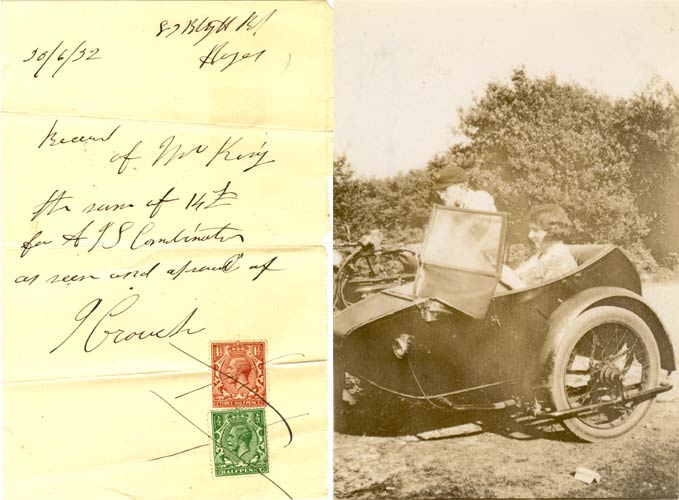 Rd
Hayes
30/6/32
Received
of Mr King
the sum of 14£
for AJS Combination
as seen and approved of
J Crouch
1½ 1½
THREE HALFPENCE
½ ½
HALFPENNY